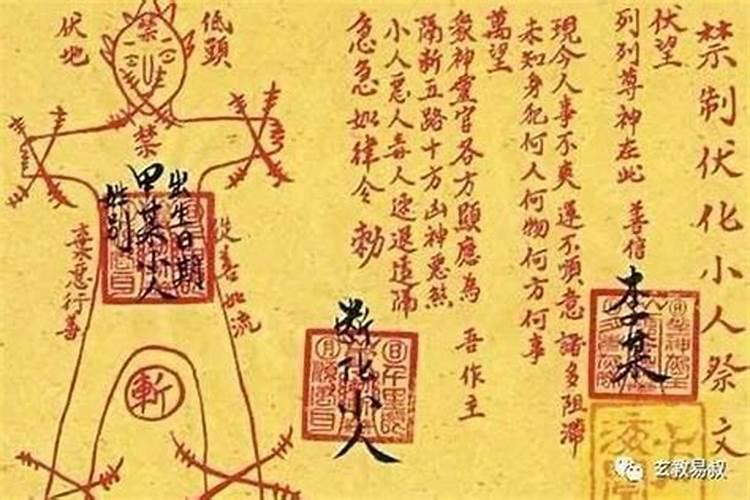 禁制伏化小人祭文
伏望
列列尊神在此 善信 李某
現今人事不爽運不順意諸多阻滯
未知身犯何人何物何方何事
萬望
衆神靈官各方顯應為 吾作主
隔斷五路十方凶神惡煞
小人惡人毒人速退遠隔
急急如律令 勅
斷化小人
低頭
伏地
禁
禁
出生日期
甲某小人
姓别
從善如流
棄惡行善
斬
玄教易叔